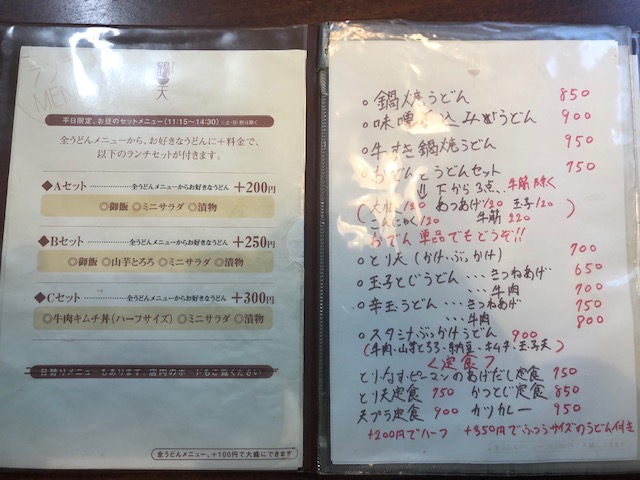 MENU
天
平日限定、お昼のセットメニュー(11:15〜14:30)
全うどんメニューから、お好きなうどんに+料金で、
以下のランチセットが付きます。
◆Aセット 全うどんメニューからお好きなうどん +200円
◎御飯 ◎ミニサラダ ◎漬物
◆Bセット 全うどんメニューからお好きなうどん +250円
◎御飯 ◎山芋とろろ ◎ミニサラダ ◎漬物
◆Cセット 全うどんメニューからお好きなうどん +300円
◎牛肉キムチ丼(ハーフサイズ) ◎ミニサラダ ◎漬物
日替りメニューもあります。店内のボードもご覧ください
全うどんメニュー、+100円で大盛にできます
○鍋焼うどん 850
○味噌 込みうどん 900
○牛すき鍋焼うどん 950
○おでんとうどんセット 750
下から3点、牛筋除く
(大根/120 あつあげ/120 玉子/120
こんにゃく/120 牛筋 220)
おでん単品でもどうぞ!!
○とり天(かけ・ぶっかけ) 700
○玉子とじうどん・・・きつねあげ 650
・・・牛肉 700
○辛玉うどん・・・きつねあげ 750
・・・牛肉 800
○スタミナぶっかけうどん 900
(牛肉・山芋とろろ・納豆・キムチ・玉子天)
<定食>
とり・なす・ピーマンのあげだし定食 750
とり天定食 750 かつとじ定食 850
天プラ定食 900 カツカレー 950
+200円でハーフ +350円でふつうサイズのうどん付き